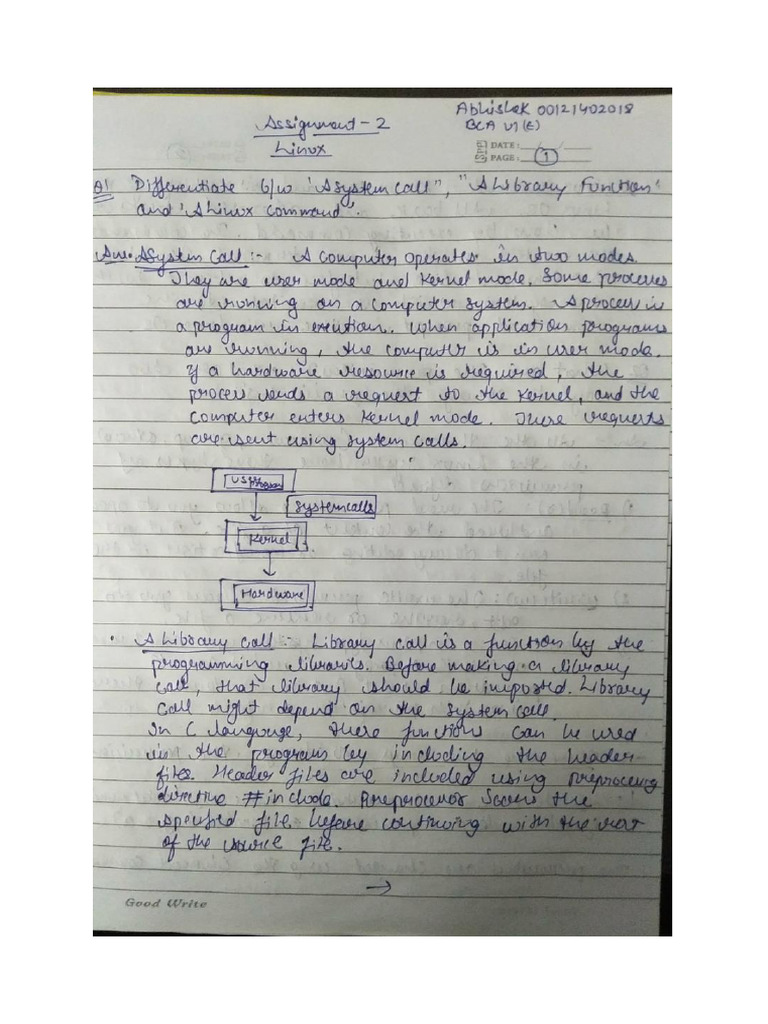 Abhishek 00121402018
Assignment-2
BCA VI (E)
Linux
DATE:
PAGE: 1
Q1 Differentiate b/w 'A System Call", "A Library Function'
and 'A Linux command'.
Ans. A System Call :- A computer operates in two modes.
They are user mode and Kernel mode. Some processes
are running on a computer system. A process is
a program in execution. When application programs
are running, the computer is in user mode.
If a hardware resource is required, the
process sends a request to the Kernel, and the
computer enters Kernel mode. These requests
are sent using system calls.
User Program
System calls
Kernel
Hardware
• A Library Call :- Library call is a function by the
programming libraries. Before making a library
call, that library should be imported. Library
call might depend on the system call.
In C language, these functions can be used
in the program by including the header
files. Header files are included using preprocessing
directive #include. Preprocessor scans the
specified file before continuing with the rest
of the source file.
→
Good Write